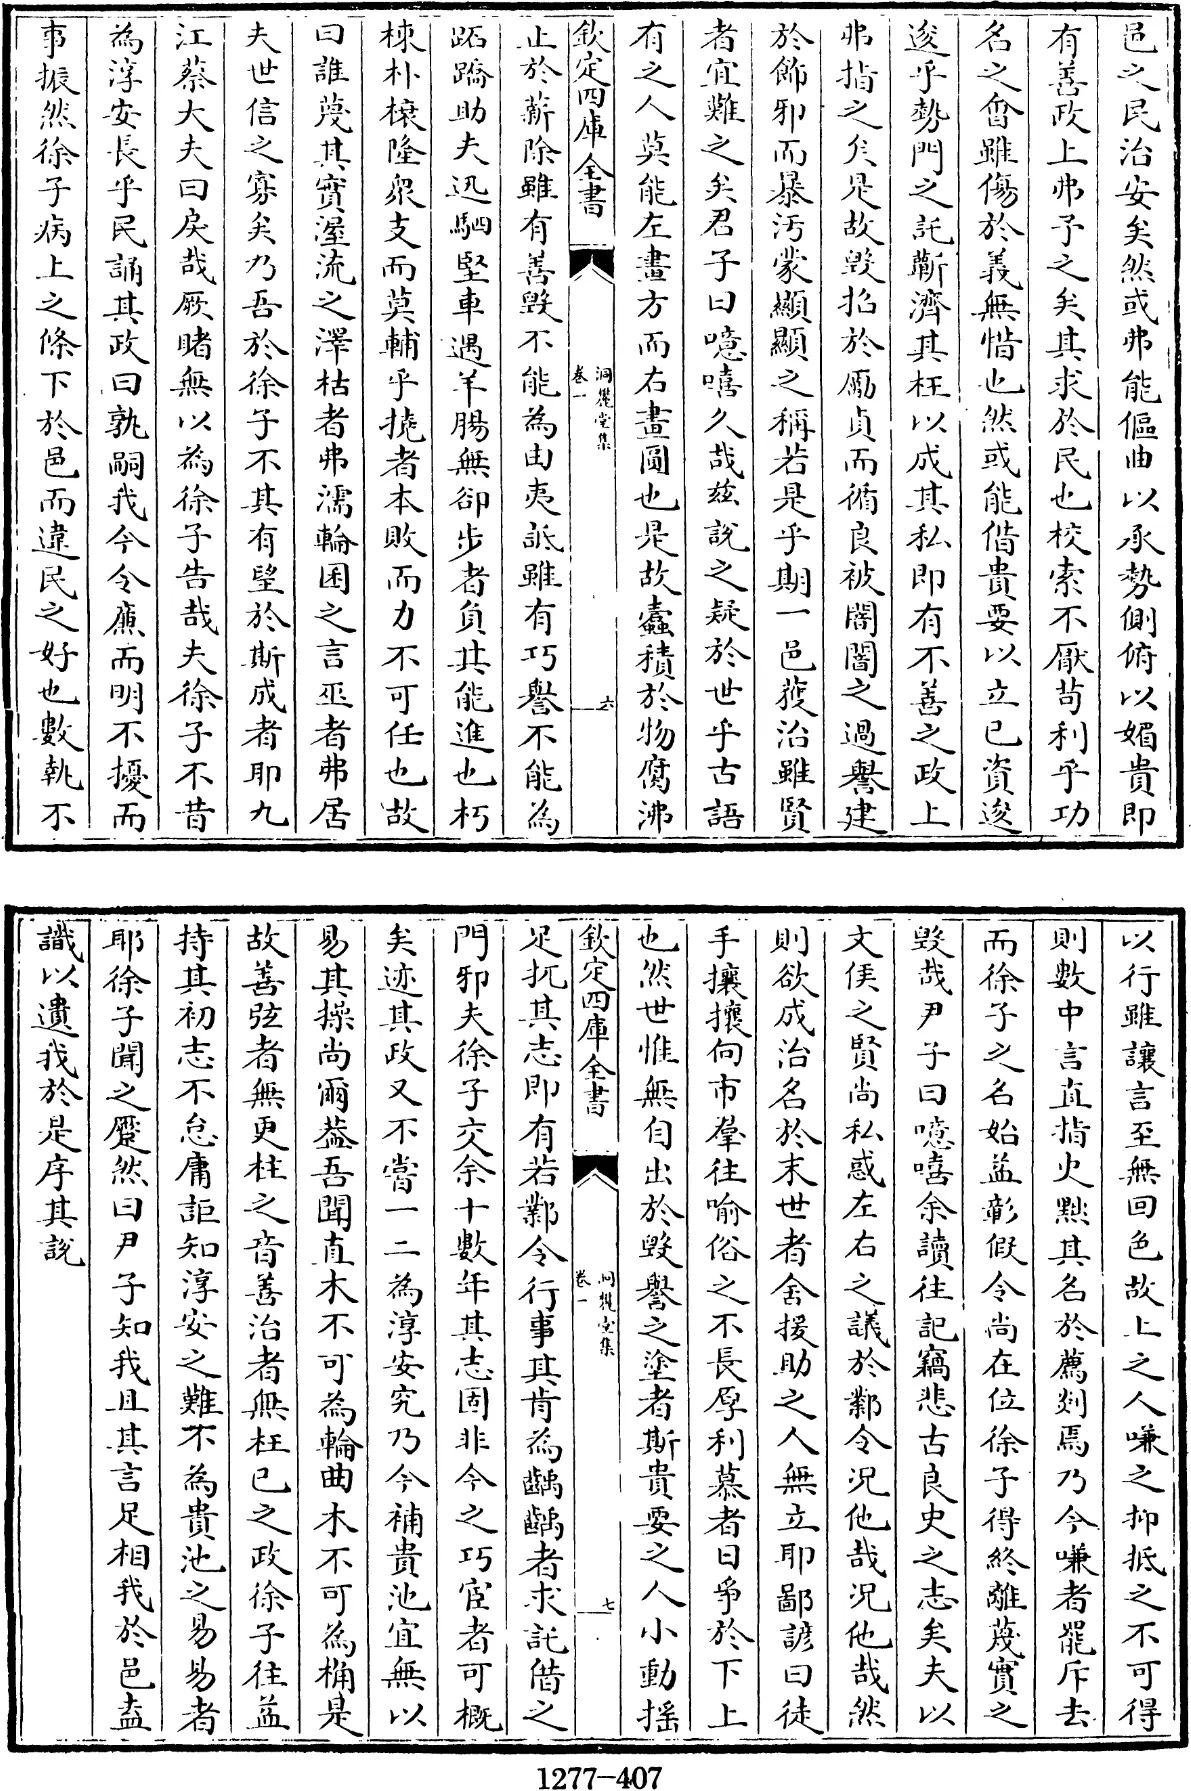 邑之民治安矣然或弗能傴曲以承勢側俯以媚貴即
有善政上弗予之矣其求於民也校索不厭苟利乎功
名之㑹雖傷於義無惜也然或能借貴要以立已資逡
逡乎勢門之託蘄濟其枉以成其私即有不善之政上
弗指之矣是故毁掐於勵貞而循良被闇闇之過譽建
於飾邪而暴汚蒙顯顯之稱若是乎期一邑蒞治雖賢
者宜難之矣君子曰噫嘻久哉兹說之疑於世乎古語
有之人莫能左畫方而右畫圓也是故蠧積於物腐沸
欽定四庫全書
洞麓堂集
卷一
六
止於薪除雖有善毁不能為由夷詆雖有巧譽不能為
跖蹻助夫迅駟堅車遇羊腸無卻步者負其能進也朽
棟朴榱隆衆支而莫輔乎撓者本敗而力不可任也故
曰誰蔑其實渥流之澤枯者弗濡輪囷之言巫者弗居
夫世信之寡矣乃吾於徐子不其有望於斯成者耶九
江蔡大夫曰戾哉厥睹無以為徐子告哉夫徐子不昔
為淳安長乎民誦其政曰孰嗣我今令㢘而明不擾而
事振然徐子病上之條下於邑而違民之好也數執不
以行雖讓言至無回色故上之人嗛之抑抵之不可得
則數中言直指火㸃其名於薦剡焉乃今嗛者罷斥去
而徐子之名始益彰假令尚在位徐子得終離蔑實之
毁哉尹子曰噫嘻余讀往記竊悲古良史之志矣夫以
文侯之賢尚私惑左右之議於鄴令况他哉况他哉然
則欲成治名於末世者舍援助之人無立耶鄙諺曰徒
手攘攘向市羣往喻俗之不長厚利慕者日爭於下上
也然世惟無自出於毁譽之塗者斯貴要之人小動揺
欽定四庫全書
洞麓堂集
卷一
七
足扤其志即有若鄴令行事其肯為齲齲者求託借之
門邪夫徐子交余十數年其志固非今之巧宦者可概
矣迹其政又不嘗一二為淳安究乃今補貴池宜無以
易其操尚爾葢吾聞直木不可為輪曲木不可為桷是
故善弦者無更柱之音善治者無枉已之政徐子往益
持其初志不怠庸詎知淳安之難不為貴池之易易者
耶徐子聞之蹙然曰尹子知我且其言足相我於邑盍
識以遺我於是序其說
1277-407